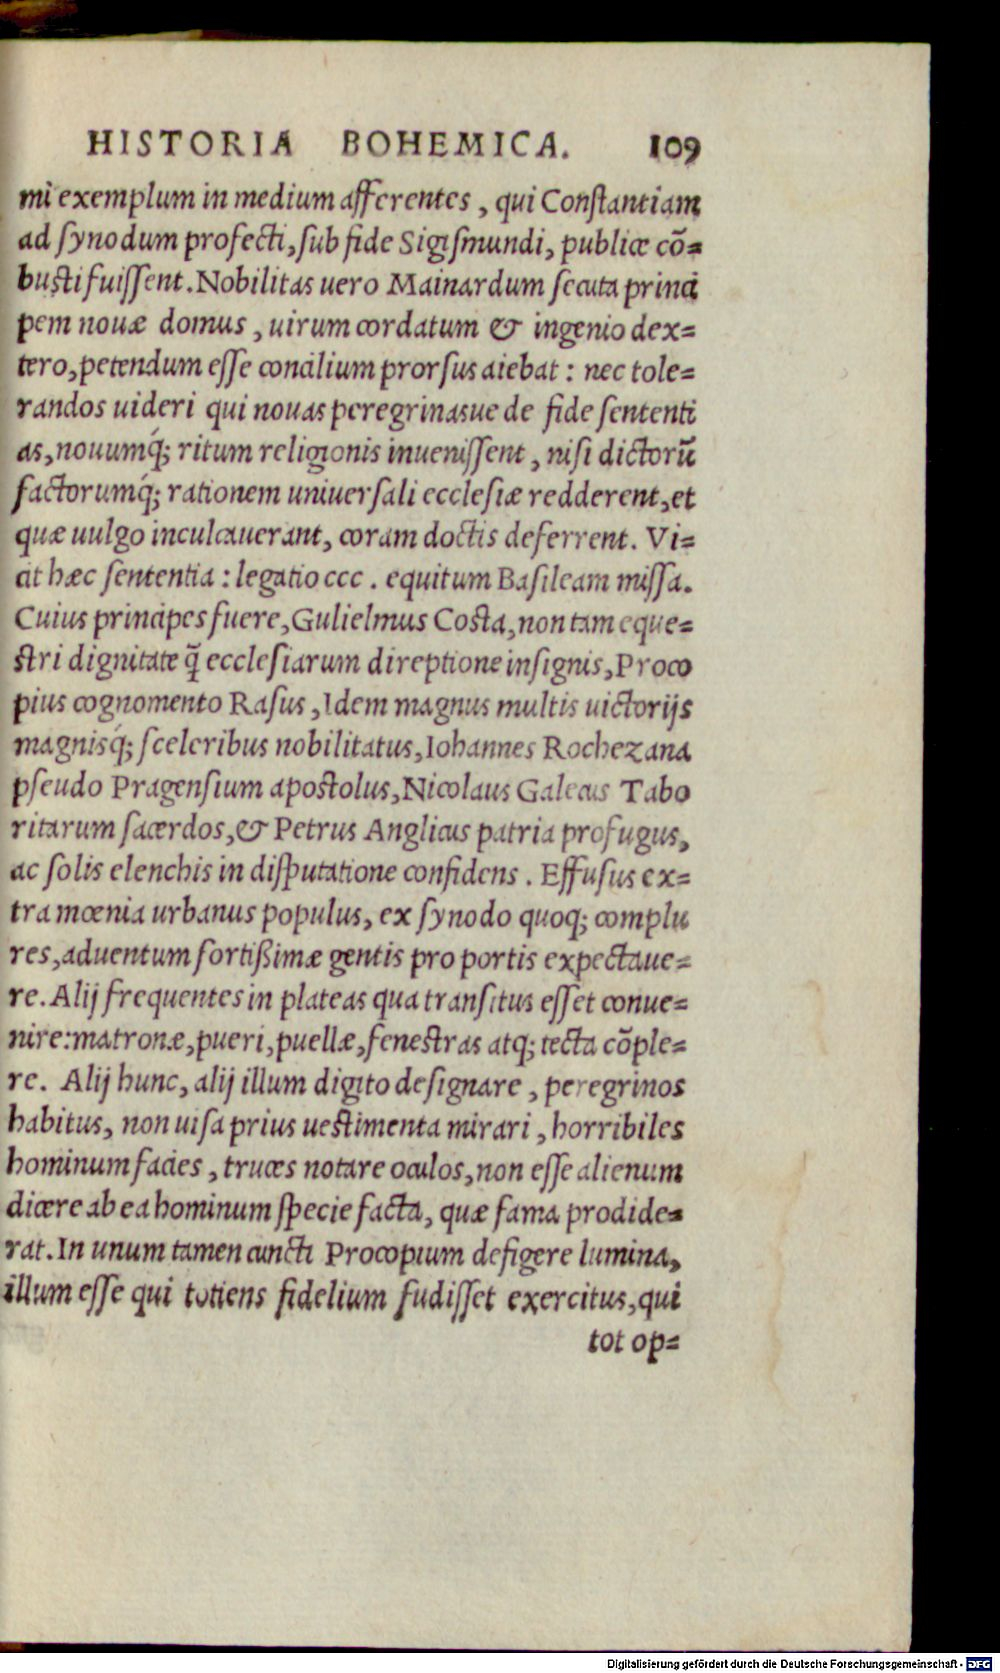 HISTORIA BOHEMICA. 109
mi exemplum in medium afferentes, qui Conſtantiam
ad ſynodum profecti, ſub fide Sigiſmundi, publicæ cō=
buſti fuiſſent. Nobilitas uero Mainardum ſecuta princi
pem nouæ domus, uirum cordatum & ingenio dex=
tero, petendum eſſe concilium prorſus aiebat: nec tole=
randos uideri qui nouas peregrinasue de fide ſententi
as, nouumq́; ritum religionis inueniſſent, niſi dictorū
factorumq́; rationem uniuerſali eccleſiæ redderent, et
quæ uulgo inculcauerant, coram doctis deferrent. Vi=
cit hæc ſententia: legatio ccc. equitum Baſileam miſſa.
Cuius principes fuere, Gulielmus Coſta, non tam eque=
ſtri dignitate q̄ eccleſiarum direptione inſignis, Proco
pius cognomento Raſus, Idem magnus multis uictorijs
magnisq́; ſceleribus nobilitatus, Iohannes Rochezana
pſeudo Pragenſium apoſtolus, Nicolaus Galecus Tabo
ritarum ſacerdos, & Petrus Anglicus patria profugus,
ac ſolis elenchis in diſputatione confidens. Effuſus ex=
tra mœnia urbanus populus, ex ſynodo quoq; complu
res, aduentum fortißimæ gentis pro portis expectaue=
re. Alij frequentes in plateas qua tranſitus eſſet conue=
nire: matronæ, pueri, puellæ, feneſtras atq; tecta cōple=
re. Alij hunc, alij illum digito deſignare, peregrinos
habitus, non uiſa prius ueſtimenta mirari, horribiles
hominum facies, truces notare oculos, non eſſe alienum
dicere ab ea hominum ſpecie facta, quæ fama prodide=
rat. In unum tamen cuncti Procopium defigere lumina,
illum eſſe qui totiens fidelium fudiſſet exercitus, qui
tot op=
Digitalisierung gefördert durch die Deutsche Forschungsgemeinschaft - DFG